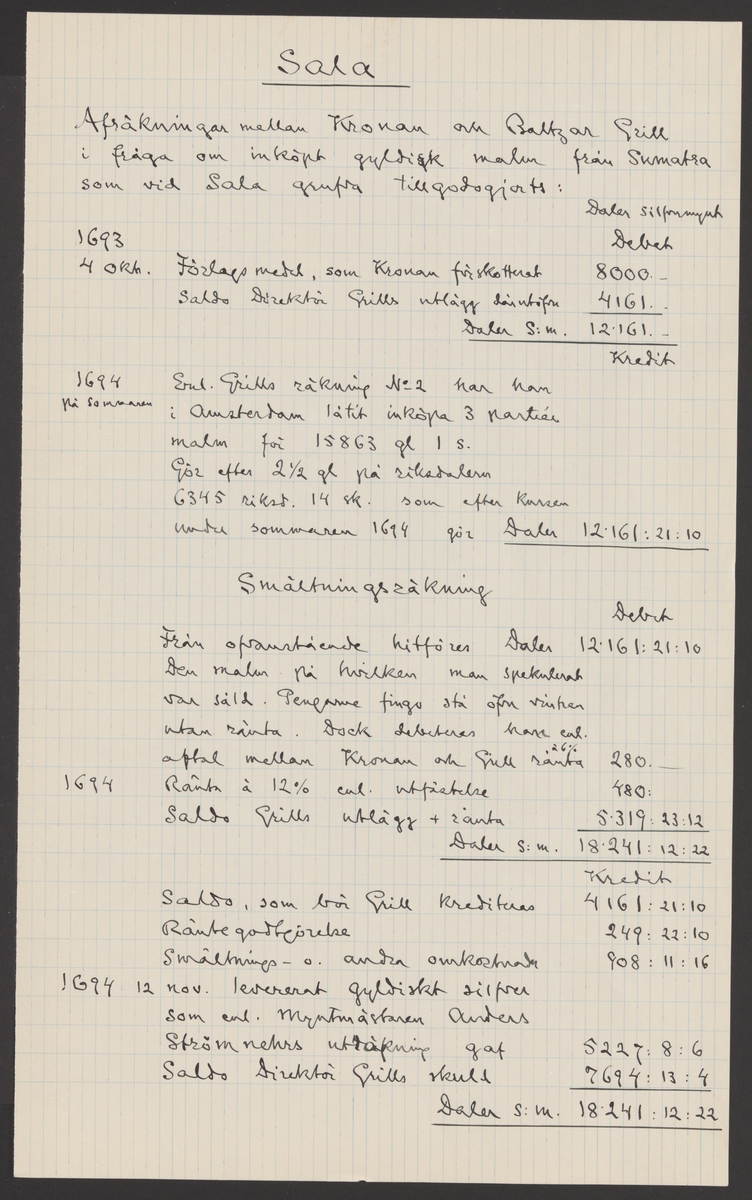 Sala
Afräkningar mellan Kronan och Baltzar Grill
i fråga om inköpt gyldisk malm från Sumatra
som vid Sala grufva tillgodogjorts:
Daler silfvermynt
1693 Debet
4 Okt. Förlagsmedel, som Kronan förskotterat 8000.–
Saldo Direktör Grills utlägg därutöfver 4161.–
Daler S:m. 12·161.–
Kredit
1694 Enl. Grills räkning No 2 har han
på sommaren i Amsterdam låtit inköpa 3 partier
malm för 15863 gl 1 s.
Gör efter 2 1/2 gl på riksdalern
6345 riksd. 14 sk. som efter kursen
under sommaren 1694 gör Daler 12·161:21:10
Smältningsräkning
Debet
Från ofvanstående hitföres Daler 12·161:21:10
Den malm på hvilken man spekulerat
var såld. Pengarne fingo stå öfver vintern
utan ränta. Dock debiteras han enl.
aftal mellan Kronan och Grill ränta à 6% 280.–
1694 Ränta à 12% enl. utfästelse 480:
Saldo Grills utlägg + ränta 5·319:23:12
Daler s:m. 18·241:12:22
Kredit
Saldo, som bör Grill krediteras 4161:21:10
Räntegodtgörelse 249:22:10
Smältnings- o. andra omkostnader 908:11:16
1694 12 nov. levererat gyldiskt silfver
som enl. Myntmästaren Anders
Strömnehrs uträkning gaf 5227:8:6
Saldo Direktör Grills skuld 7694:13:4
Daler s:m. 18·241:12:22